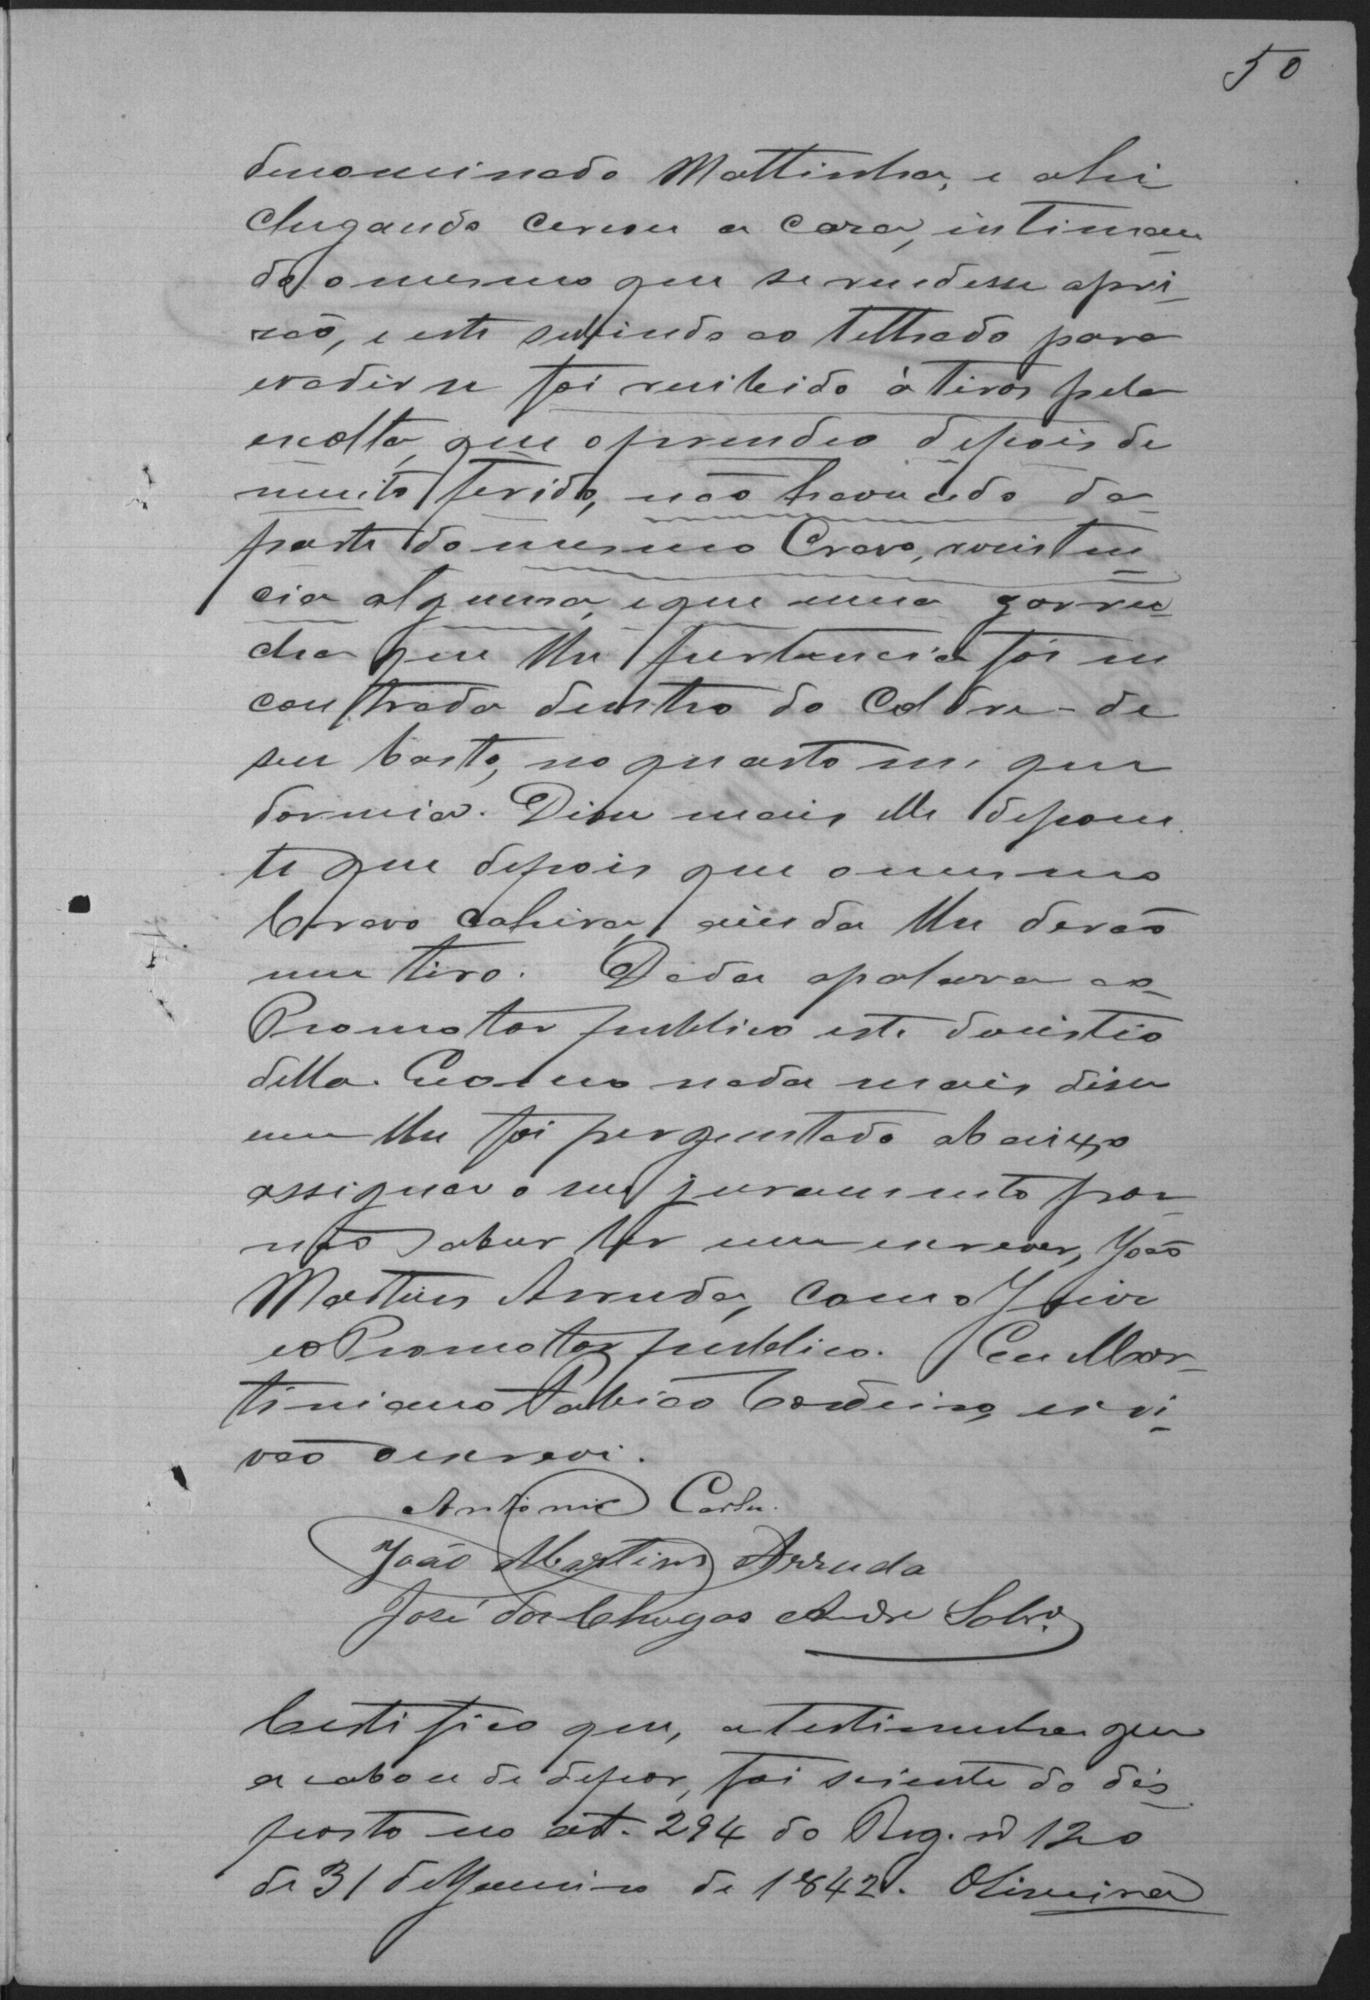 50
denominado Mattinha, e ahi
chegando cercou a caza, intiman
do o mesmo que se rendesse a pri-
zão, e este subindo ao telhado para
evadir se foi recibido á tiros pela
escolta, que o prendeo depois de
muito ferido, não havendo da
parte do mesmo Cravo, resisten
cia alguma, e que uma garru-
cha que lhe pertencia foi en
contrada dentro do Coldre de
seu basto, no quarto em que
dormia. Disse mais elle depoen
te que depois que o mesmo
Cravo cahira, ainda lhe derão
um tiro. Dada a palavra ao
Promotor publico este desistio
della. E como nada mais disse
nem lhe foi perguntado abaixo
assigna o seu juramento por
não saber ler nem escrever, João
Martins Arruda, com o Juiz
e o Promotor publico. Eu Mar-
tiniano Cordeiro, escri-
vão o escrevi.
Antonio
João Martins Arruda
José das Chagas Andre Sobrº
Certifico que, a testimunha que
acabou de depor, foi sciente do dis
posto no art. 294 do Reg. nº 120
de 31 de Janeiro de 1842. Oliveira